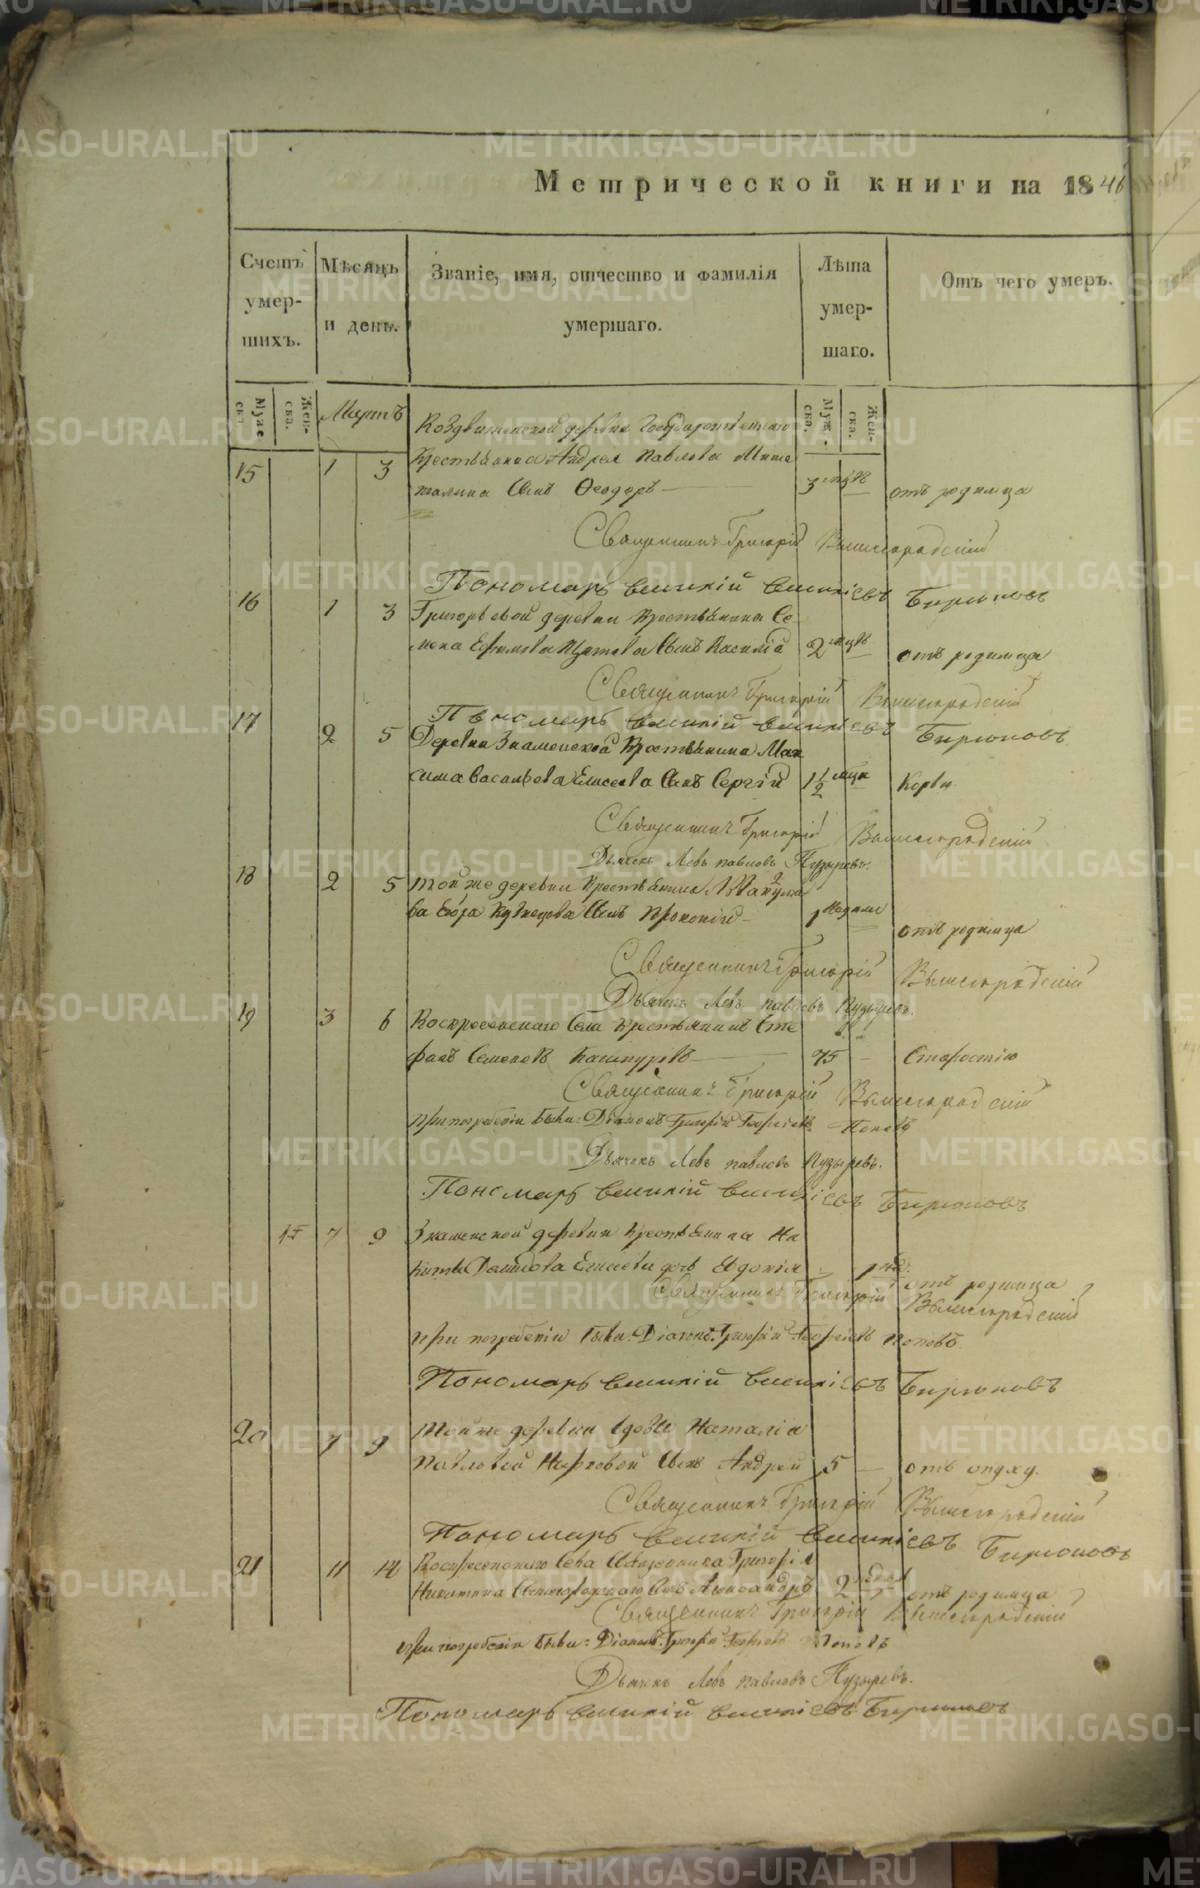 Метрической книги на 1846
Счетъ умер-шихъ.
Мѣсяцъ и день.
Званіе, имя, отчество и фамилія умершаго.
Лѣта умер-шаго.
Отъ чего умеръ.
Муже ска.
Жен-ска.
Мартъ
Муж-ска.
Жен-ска.
Воздвиженской деревни Государственнаго
15 1 3 Крестьянина Андрея Павлова
сынъ Ѳеодоръ 3 отъ родимца
Священникъ Григорій Вышегородскій
Пономарь Василій Васильевъ Бирюковъ
16 1 3 Григорьевой деревни Крестьянина Се-
мена Ефимова сынъ Василій 2 отъ родимца
Священникъ Григорій Вышегородскій
Пономарь Василій Васильевъ Бирюковъ
17 2 5 Деревни Знаменской Крестьянина Мак
сима Васильева Елисеева сынъ Сергій 1 1/2 Корью
Священникъ Григорій Вышегородскій
Дьячекъ Левъ Павловъ Пузыревъ.
18 2 5 Той же деревни Крестьянина
сынъ Прокопій 1 недели отъ родимца
Священникъ Григорій Вышегородскій
Дьячекъ Левъ Павловъ Пузыревъ.
19 3 6 Воскресенскаго Села Крестьянинъ Сте
фанъ Семеновъ 75 Старостію
Священникъ Григорій Вышегородскій
При погребеніи были: Діаконъ Григорій Георгіевъ Поповъ
Дьячекъ Левъ Павловъ Пузыревъ.
Пономарь Василій Васильевъ Бирюковъ
15 7 9 Знаменской деревни Крестьянина Ни
киты Демидова Елисеева дочь Евдокія 1 нед: отъ родимца
Священникъ Григорій Вышегородскій
При погребеніи были: Діаконъ Григорій Георгіевъ Поповъ
Пономарь Василій Васильевъ Бирюковъ
20 7 9 Той же деревни вдовы Наталіи
Павловой сынъ Андрей 5 отъ
Священникъ Григорій Вышегородскій
Пономарь Василій Васильевъ Бирюковъ
21 11 14 Воскресенскаго Села Священника Григорія
Никитина Вышегородскаго сынъ Александръ 2 недел отъ родимца
Священникъ Григорій Вышегородскій
При погребеніи были: Діаконъ Григорій Георгіевъ Поповъ
Дьячекъ Левъ Павловъ Пузыревъ.
Пономарь Василій Васильевъ Бирюковъ
METRIKI.GASO-URAL.RU